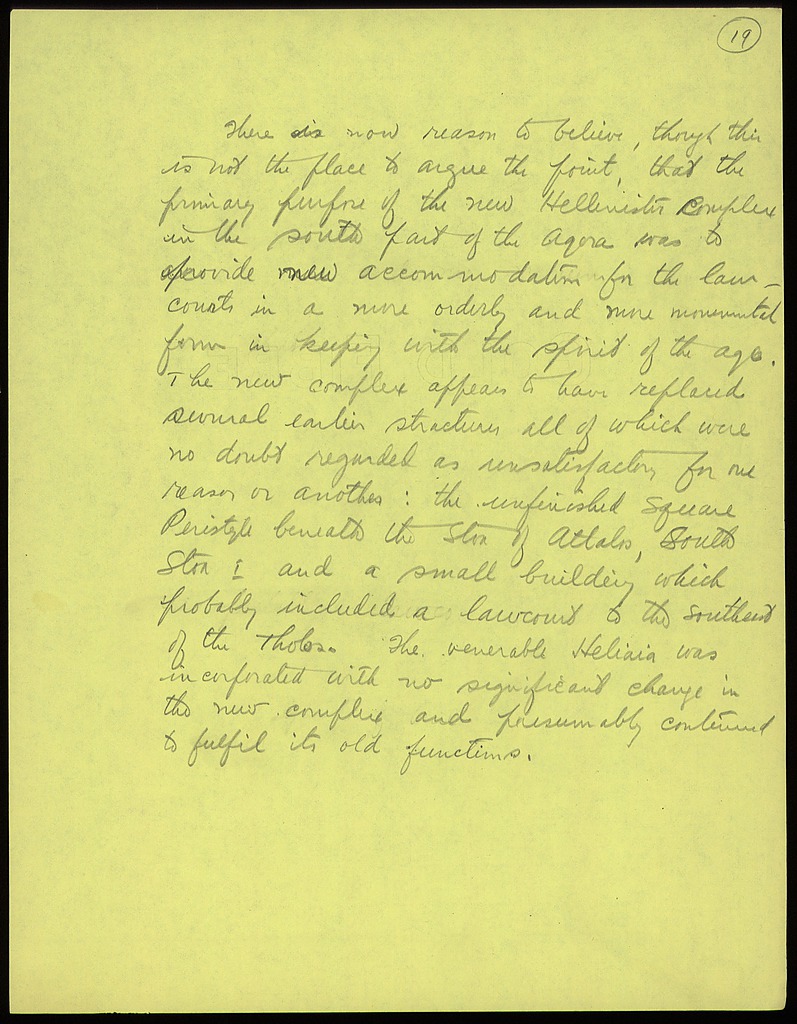 19
There is now reason to believe, though this
is not the place to argue the point, that the
primary purpose of the new Hellenistic complex
in the south part of the Agora was to
provide new accommodation for the law-
courts in a more orderly and more monumental
form in keeping with the spirit of the age.
The new complex appears to have replaced
several earlier structures all of which were
no doubt regarded as unsatisfactory for one
reason or another: the unfinished Square
Peristyle beneath the Stoa of Attalos, South
Stoa I and a small building which
probably included a lawcourt to the southeast
of the Tholos. The venerable Heliaia was
incorporated with no significant change in
the new complex and presumably continued
to fulfil its old functions.